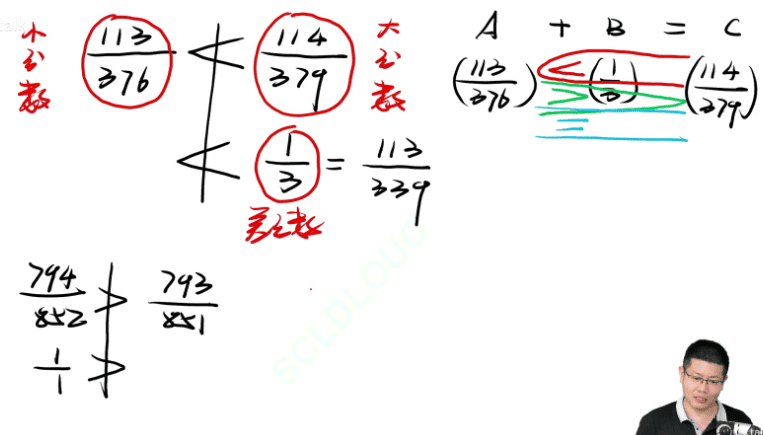 小分数 113/376 < 114/379 大分数
< 1/3 = 113/339
差分数
A + B = C
(113/376) < (1/3) (114/379)
>
=
794/852 > 793/851
1/1 >
SCLDLOUG